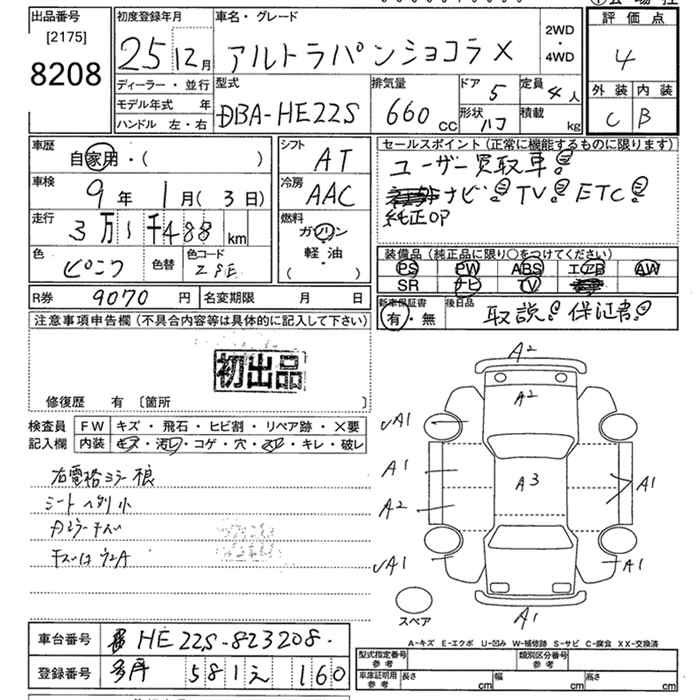 出品番号
[2175]
8208
初度登録年月
25 12月
車名・グレード
アルトラパンショコラX
2WD
・
4WD
評価点
4
外装 内装
C B
ディーラー・並行
モデル年式 年
ハンドル 左・右
型式
DBA-HE22S
排気量
660 CC
ドア
5
形状
ハコ
定員
4人
積載
kg
車歴
自家用・( )
車検
9年 1月(3日)
走行
3万1千488km
色
ピンク
色替
色コード
ZSE
シフト
AT
冷房
AAC
燃料
ガソリン
軽・油
( )
セールスポイント(正常に機能するものに限ります)
ユーザー買取車!
ナビ! TV! ETC!
純正OP
装備品(純正品に限り○をつけてください)
PS PW ABS エアB AW
SR ナビ TV
新車保証書
有・無
後日品
取説! 保証書!
R券 9070円 名変期限 月 日
注意事項申告欄(不具合内容等は具体的に記入して下さい)
初出品
修復歴 有 〔箇所 〕
検査員
記入欄
FW キズ・飛石・ヒビ割・リペア跡・X要
内装 キズ・汚レ・コゲ・穴・スレ・キレ・破レ
右電格ミラー
シート
A2
A2
A1
A1
A2
A3
A1
A1
A1
A1
スペア
A-キズ E-エクボ U-凹み W-補修跡 S-サビ C-腐食 XX-交換済
車台番号 HE22S-823208.
登録番号 多摩 581え 160
型式指定番号
参考
類別区分番号
参考
車庫証明用
参考
長さ cm 幅 cm 高さ cm